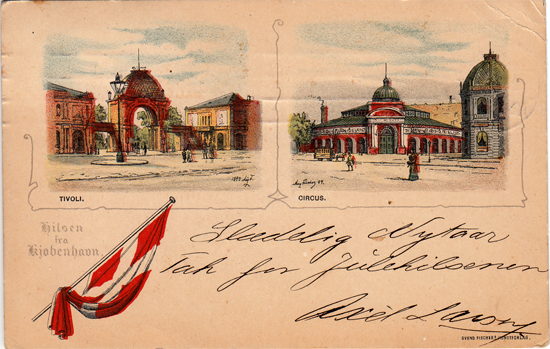 TIVOLI.
CIRCUS.
Hilsen
fra
Kjøbenhavn
Glædelig Nytaar
Tak for Julehilsenen
Axel Larsen
SVEND FISCHERS KUNSTFORLAG.